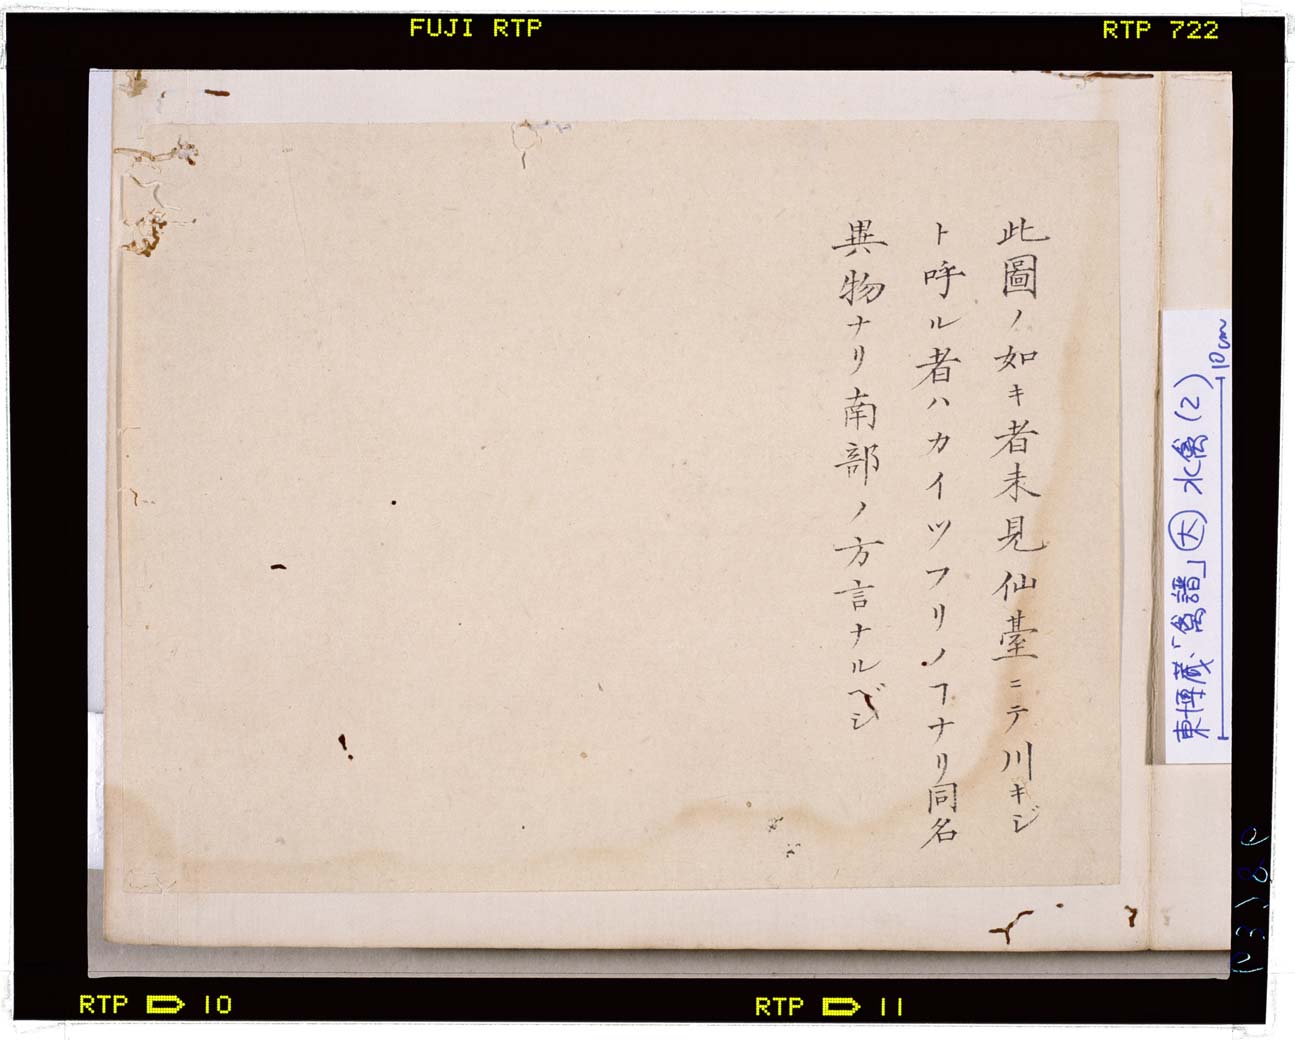 FUJI RTP
RTP 722
此圖ノ如キ者未見仙臺ニテ川キジ
ト呼ル者ハカイツフリノヿナリ同名
異物ナリ南部ノ方言ナルベシ
東博蔵、「禽譜」大 水禽(2)
10cm
RTP 10
RTP 11